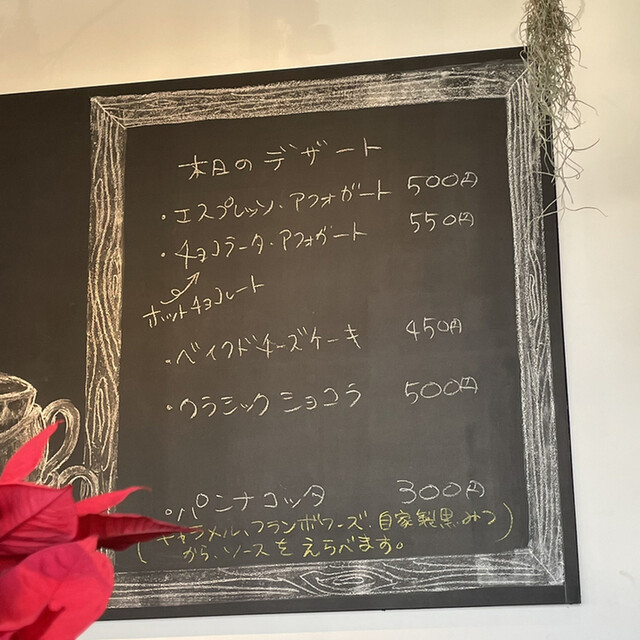 本日のデザート
・エスプレッソ・アフォガート 500円
・チョコラータ・アフォガート 550円
ホットチョコレート
・ベイクドチーズケーキ 450円
・クラシックショコラ 500円
・パンナコッタ 300円
(キャラメル、フランボワーズ、自家製黒みつ)
から、ソースをえらべます。